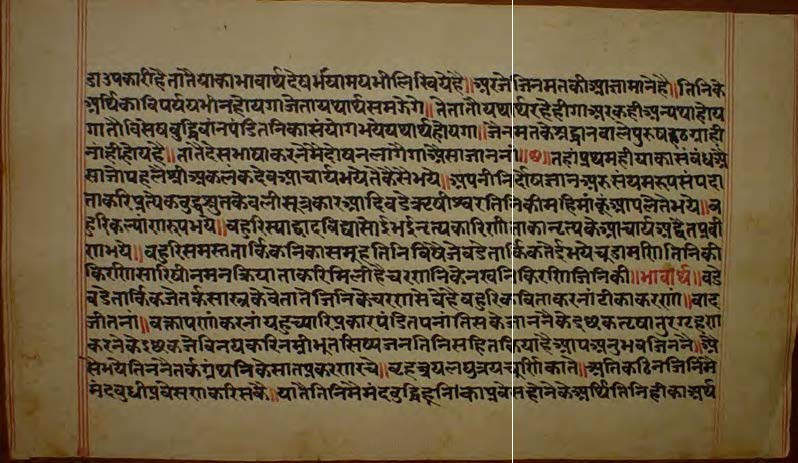 डा उपकारी है तातै याका भावार्थ देशभाषामय भी लिखिये है ॥ अर जे जिनमतकी आज्ञा मानै है ॥ तिनिकै
अर्थिका विपर्यय भी न होयगा जेता यथार्थ समझेंगे ॥ तेता तौ यथार्थ रहेहीगा अर कही अन्यथा होय
गा तौ विसेषबुद्धिवान पंडितनिका संयोग भये यथार्थ होयगा ॥ जैनमतके श्रद्धानवाले पुरुष हठग्राही
नांही होय है ॥ तातै देसभाषा करनेमै दोष न लागैगा औसा जाननां ॥ ७ ॥ तहां प्रथमही याका संबंध औ
सा जो पहलै श्रीअकलंकदेव आचार्य भये ते कैसे भये ॥ अपनी निर्दोष ज्ञान अरु संयमरूप संपदा
ताकरि प्रत्येकबुद्ध श्रुतकेवली सूत्रकार आदि बडे ऋषीश्वर तिनिकी महिमांकूं आप लेते भये ॥ ब
हुरि कल्याणरूप भये ॥ बहुरि स्याद्वादविद्या सोई भई नृत्यकारिणी ताका नृत्यके आचार्य अद्वैत प्रवी
ण भये ॥ बहुरि समस्त तार्किकनिका समूह तिनि विषै जे बडे तार्किक तेई भये चूडामणि तिनिकी
किरणि सारिषी नमनक्रिया ताकरि मिली है चरणनिके नखनि किरणि जिनिकी ॥ भावार्थ ॥ बडे
बडे तार्किक जे तर्कसास्त्रके वेता ते जिनिके चरण सेवै है बहुरि कविता करनां टीका करणा ॥ वाद
जीतनां ॥ वक्तापणां करनां यह च्यारि प्रकार पंडितपनां तिसके जाननैके इच्छक
करनेके इच्छक जे विनयकरि नम्रीभूत सिष्यजन तिनि सहित कियाहै आप अनुभव जिननै ॥ औ
से भये तिननै तर्कग्रंथनिके सात प्रकरण रचे ॥ वृहत्त्रय लघुत्रय चूर्णिका ते ॥ अति कठिन जिनिमै
मंदबुधी प्रवेस ण करि सकै ॥ यातै तिनिमै मंदबुद्धिहूनिका प्रवेस होनेके अर्थि तिनिहीका अर्थ